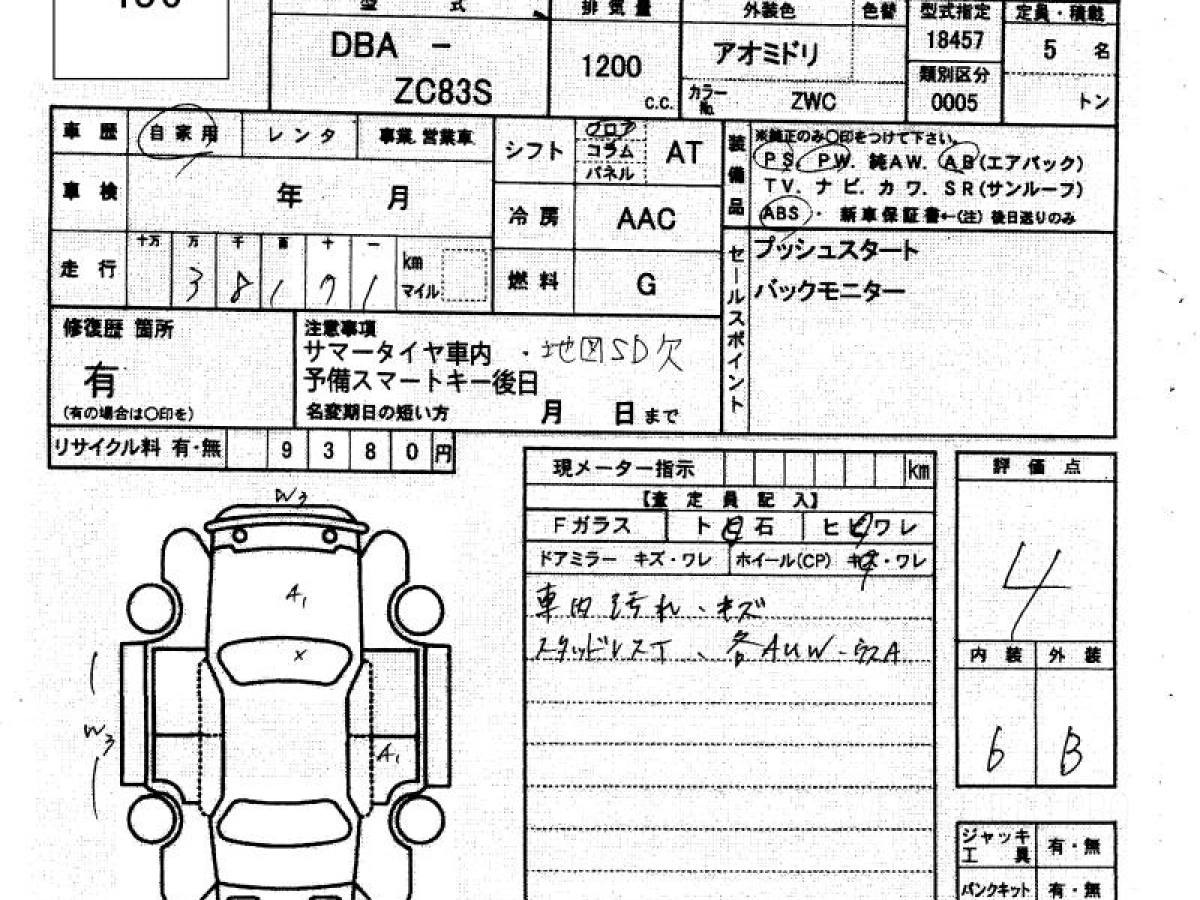 型 式
排気量
外装色
色替
型式指定
定員・積載
DBA －
ZC83S
1200
c.c.
アオミドリ
カラー
No.
ZWC
18457
類別区分
0005
5 名
トン
車 歴
自家用
レンタ
事業.営業車
シフト
フロア
コラム
パネル
AT
装備品
※純正のみ〇印をつけて下さい。
PS. PW. 純AW. AB(エアバック)
TV. ナビ. カワ. SR(サンルーフ)
ABS ・ 新車保証書←(注) 後日送りのみ
車 検
年 月
冷 房
AAC
走 行
十万 万 千 百 十 一
3 8 1 7 1
km
マイル
燃 料
G
セールスポイント
プッシュスタート
バックモニター
修復歴 箇所
有
(有の場合は〇印を)
注意事項
サマータイヤ車内 ・地図SD欠
予備スマートキー後日
名変期日の短い方 月 日まで
リサイクル料 有・無
9 3 8 0 円
現メーター指示 km
【査 定 員 記 入】
Fガラス
トビ石
ヒビワレ
ドアミラー キズ・ワレ
ホイール(CP) キズ・ワレ
車内汚れ、キズ
スタッドレスT、各AUW・ウスA
評 価 点
4
内 装
外 装
6
B
ジャッキ
工 具
有・無
パンクキット
有・無
W3
A1
×
W3
A1